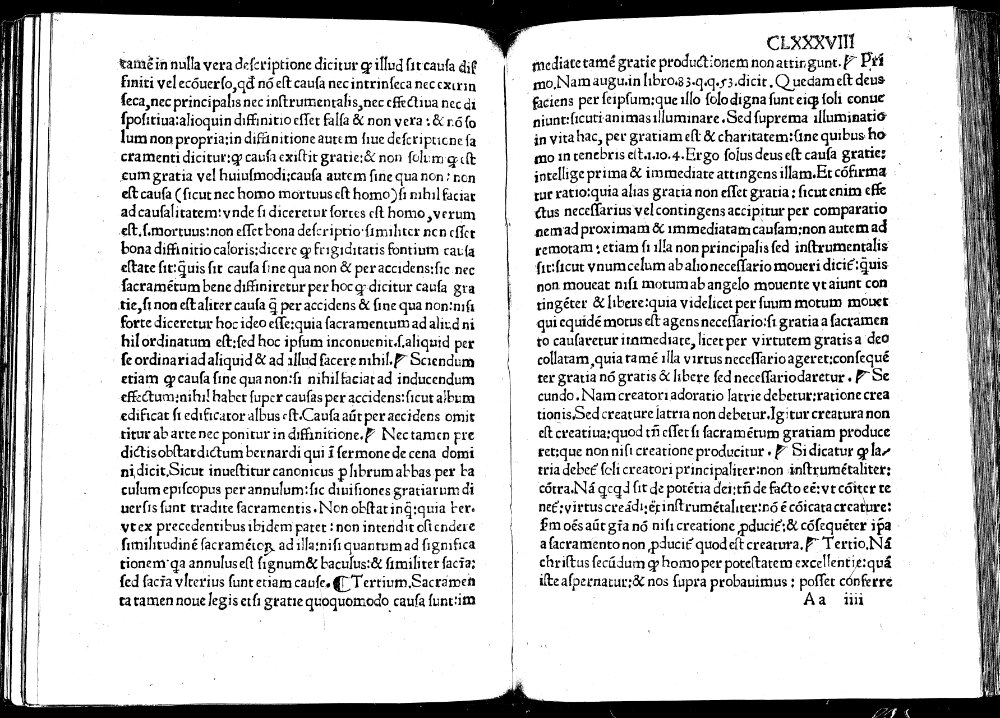 tamē in nulla vera descriptione dicitur ꝙ illud sit causa dif
finiti vel ecōuerso, qđ nō est causa nec intrinseca nec extrin
seca, nec principalis nec instrumentalis, nec effectiua nec di
spositiua: alioquin diffinitio esset falsa & non vera: & nō so
lum non propria: in diffinitione autem siue descriptione sa
cramenti dicitur: ꝙ causa existit gratie: & non solum ꝙ est
cum gratia vel huiusmodi: causa autem sine qua non: non
est causa (sicut nec homo mortuus est homo) si nihil faciat
ad causalitatem: vnde si diceretur sortes est homo, verum
est. s. mortuus: non esset bona descriptio. similiter non esset
bona diffinitio caloris: dicere ꝙ frigiditatis fontium causa
estate sit: q̄uis sit causa sine qua non & per accidens: sic nec
sacramētum bene diffiniretur per hoc ꝙ dicitur causa gra
tie, si non est aliter causa q̄ per accidens & sine qua non: nisi
forte diceretur hoc ideo esse: quia sacramentum ad aliud ni
hil ordinatum est: sed hoc ipsum inconuenit. s. aliquid per
se ordinari ad aliquid & ad illud facere nihil. ¶ Sciendum
etiam ꝙ causa sine qua non: si nihil faciat ad inducendum
effectum: nihil habet super causas per accidens: sicut album
edificat si edificator albus est. Causa aūt per accidens omit
titur ab arte nec ponitur in diffinitione. ¶ Nec tamen pre
dictis obstat dictum bernardi qui ī sermone de cena domi
ni, dicit. Sicut inuestitur canonicus ꝑ librum abbas per ba
culum episcopus per annulum: sic diuisiones gratiarum di
uersis sunt tradite sacramentis. Non obstat inq̄: quia ber.
vt ex precedentibus ibidem patet: non intendit ostendere
similitudinē sacramētoꝝ ad illa: nisi quantum ad significa
tionem. qa annulus est signum & baculus: & similiter sacr̄a:
sed sacr̄a vlterius sunt etiam cause. ¶ Tertium. Sacramen
ta tamen noue legis etsi gratie quoquomodo causa sunt: im
CLXXXVIII
mediate tamē gratie productionem non attingunt. ¶ Pri
mo. Nam augu. in libro. 83. q. q. 53. dicit. Quedam est deus
faciens per seipsum: que illo solo digna sunt eiqꝫ soli conue
niunt: sicuti animas illuminare. Sed suprema illuminatio
in vita hac, per gratiam est & charitatem: sine quibus ho
mo in tenebris est. 1. io. 4. Ergo solus deus est causa gratie:
intellige prima & immediate attingens illam. Et cōfirma
tur ratio: quia alias gratia non esset gratia: sicut enim effe
ctus necessarius vel contingens accipitur per comparatio
nem ad proximam & immediatam causam: non autem ad
remotam: etiam si illa non principalis sed instrumentalis
sit: sicut vnum celum ab alio necessario moueri dicit̄: q̄uis
non moueat nisi motum ab angelo mouente vt aiunt con
tingēter & libere: quia videlicet per suum motum mouet
qui equidē motus est agens necessario: si gratia a sacramen
to causaretur immediate, licet per virtutem gratis a deo
collatam, quia tamē illa virtus necessario ageret: consequē
ter gratia nō gratis & libere sed necessario daretur. ¶ Se
cundo. Nam creatori adoratio latrie debetur: ratione crea
tionis. Sed creature latria non debetur. Igitur creatura non
est creatiua: quod tn̄ esset si sacramētum gratiam produce
ret: que non nisi creatione producitur. ¶ Si dicatur ꝙ la
tria debet̄ soli creatori principaliter: non instrumētaliter:
cōtra. Nā qcqd sit de potētia dei: tn̄ de facto eē: vt cōiter te
net̄: virtus creādi: et̄ instrumētaliter: nō ē cōicata creature:
oēs aūt gr̄a nō nisi creatione ꝓducit̄: & cōsequēter ip̄a
a sacramento non ꝓducit̄ quod est creatura. ¶ Tertio. Nā
christus secūdum ꝙ homo per potestatem excellentie: quā
iste aspernatur: & nos supra probauimus: posset conferre
A a iiii